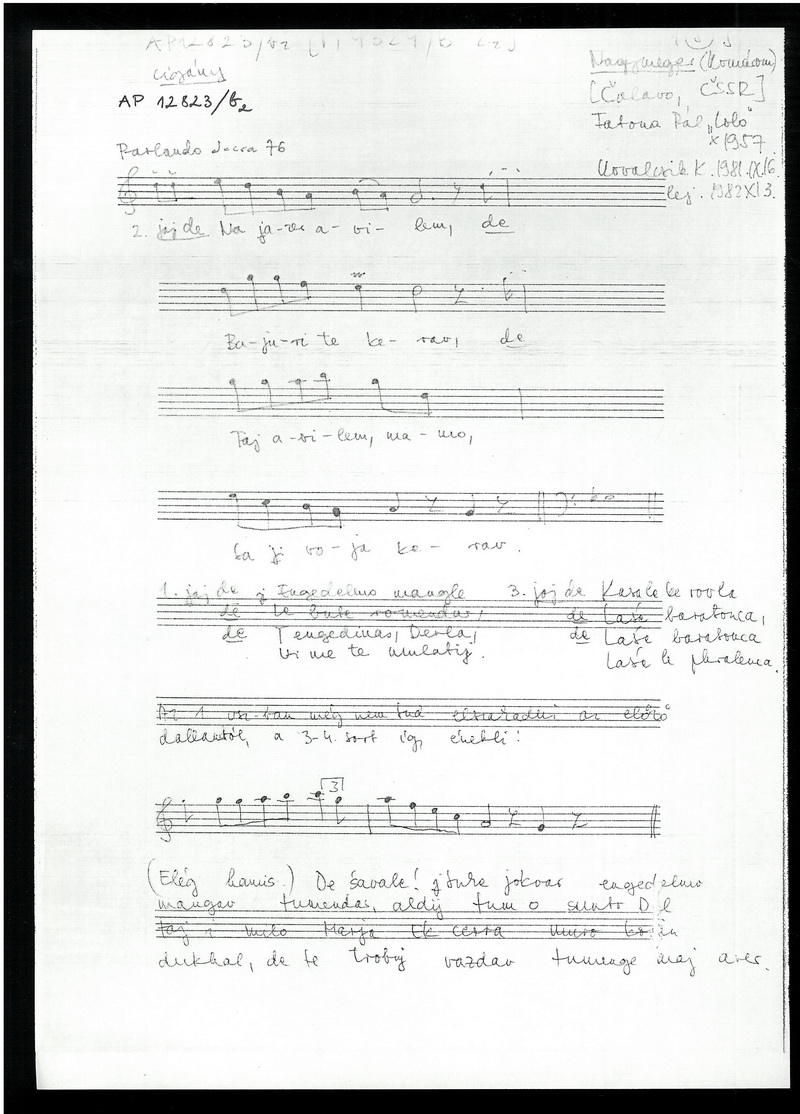 cigány
AP 12823/b2
Nagymegyer (Komárom)
[Čalovo, ČSSR]
Fatona Pál „Loló"
x1957
Kovalcsik K. 1981.IX.16.
lej. 1982.XI.3.
Parlando
2. jaj de Na ja-vi a-vi-lem, de
Ba-ju-ri te ke-rav, de
Taj a-vi-lem, ma-mo,
Sa ji vo-ja ke-rav.
1. jaj de j Engedelmo mangle
de te bute romendar,
de Tengedinas, Devla,
te mulatij.
3. jaj de Karale
de Laše baratonca,
de Laše baratonca
Laše le phralenca.
Az 1. vsz-ban még nem tud elszakadni az előző
dallamtól, a 3-4. sort így énekli:
3
(Elég hamis.) De śavale! jokvar engedelmo
mangav tumendar, aldij tume o sunto Del
taj i Marja
dukhal, de te trobuj vazdav tumenge maj aver.